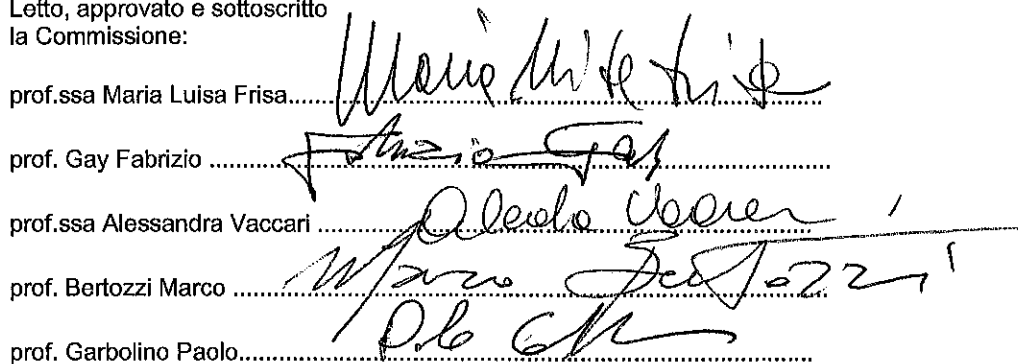 Letto, approvato e sottoscritto
la Commissione:
prof.ssa Maria Luisa Frisa
prof. Gay Fabrizio
prof.ssa Alessandra Vaccari
prof. Bertozzi Marco
Marco Bertozzi
prof. Garbolino Paolo